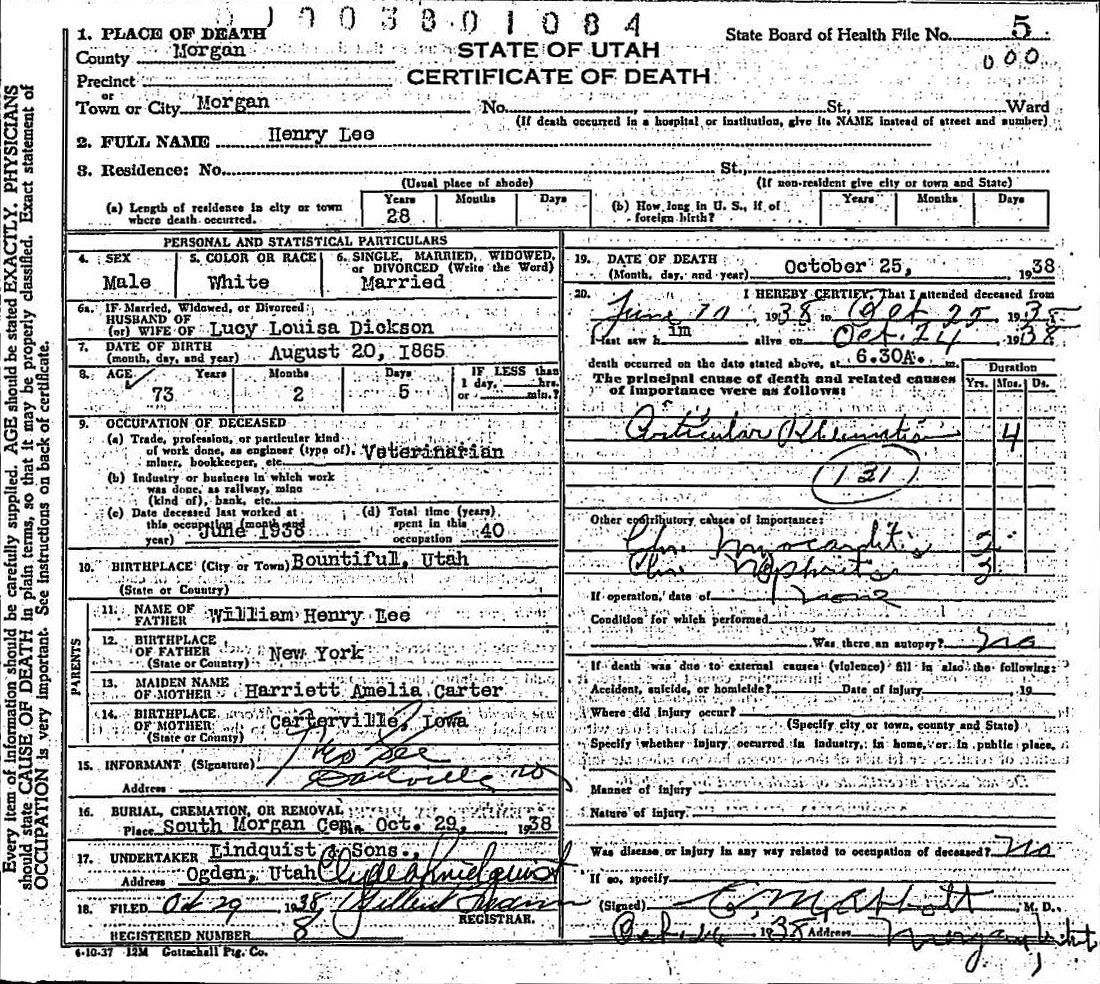 003801084
1. PLACE OF DEATH
State Board of Health File No. 5
County Morgan
STATE OF UTAH
000
CERTIFICATE OF DEATH
Precinct
or
Town or City Morgan No. St., Ward
(If death occurred in a hospital or institution, give its NAME instead of street and number)
2. FULL NAME Henry Lee
3. Residence: No. St.,
(Usual place of abode) (If non-resident give city or town and State)
(a) Length of residence in city or town where death occurred. Years 28 Months Days
(b) How long in U. S., if of foreign birth? Years Months Days
PERSONAL AND STATISTICAL PARTICULARS
4. SEX Male
5. COLOR OR RACE White
6. SINGLE, MARRIED, WIDOWED, or DIVORCED (Write the Word) Married
6a. IF Married, Widowed, or Divorced
HUSBAND OF
(or) WIFE OF Lucy Louisa Dickson
7. DATE OF BIRTH
(month, day, and year) August 20, 1865
8. AGE Years 73 Months 2 Days 5 IF LESS than 1 day, hrs. or min.?
9. OCCUPATION OF DECEASED
(a) Trade, profession, or particular kind
of work done, as engineer (type of), Veterinarian
miner, bookkeeper, etc.
(b) Industry or business in which work
was done, as railway, mine
(kind of), bank, etc.
(c) Date deceased last worked at this occupation (month and year) June 1938
(d) Total time (years) spent in this occupation 40
10. BIRTHPLACE (City or Town) Bountiful, Utah
(State or Country)
PARENTS
11. NAME OF FATHER William Henry Lee
12. BIRTHPLACE OF FATHER New York
(State or Country)
13. MAIDEN NAME OF MOTHER Harriett Amelia Carter
14. BIRTHPLACE OF MOTHER Carterville, Iowa
(State or County)
15. INFORMANT (Signature) Lee
Address
16. BURIAL, CREMATION, OR REMOVAL
Place South Morgan Cem. Oct. 29, 1938
17. UNDERTAKER Lindquist & Sons.,
Address Ogden, Utah Clyde Lindquist
18. FILED Oct 29 1938
REGISTRAR.
REGISTERED NUMBER 8
4-10-37 12M Gottschall Ptg. Co.
19. DATE OF DEATH
(Month, day, and year) October 25, 1938
20. I HEREBY CERTIFY, That I attended deceased from
June 1938 to Oct 25, 193
I last saw him alive on Oct. 24 1938
death occurred on the date stated above, at 6.30A. m.
The principal cause of death and related causes
of importance were as follows:
Duration
Yrs. Mos. Ds.
Articular Rheumatism 4
131
Other contributory causes of importance:
Chr. Myocarditis 2
Chr. Nephritis 3
If operation, date of none
Condition for which performed
Was there an autopsy? no
If death was due to external causes (violence) fill in also the following:
Accident, suicide, or homicide? Date of injury 19
Where did injury occur?
(Specify city or town, county and State)
Specify whether injury occurred in industry, in home, or in public place.
Manner of injury
Nature of injury
Was disease or injury in any way related to occupation of deceased? no
If so, specify
(Signed) M. D.
Oct. 26 1938 Address Morgan, Utah
Every item of information should be carefully supplied. AGE should be stated EXACTLY. PHYSICIANS
should state CAUSE OF DEATH in plain terms, so that it may be properly classified. Exact statement of
OCCUPATION is very important. See instructions on back of certificate.